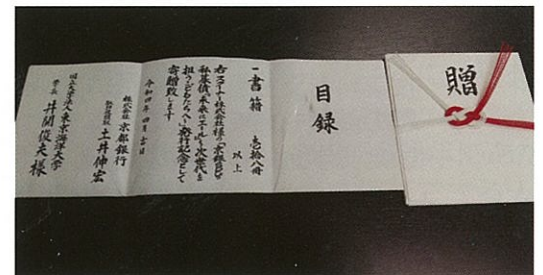 贈
目録
一 書籍 壱拾八冊
以上
右スミヤキ株式会社様の「京銀SDGs
私募債（未来にエール）」次世代を
担う子どもたちへ」発行記念として
寄贈致します
令和四年四月吉日
株式会社 京都銀行
取締役頭取 土井伸宏
国立大学法人東京海洋大学
学長 井関俊夫様